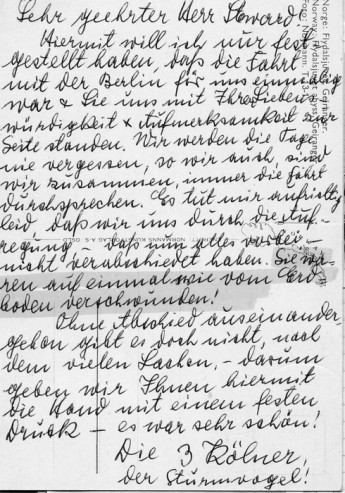 Sehr geehrter Herr Steward!
Hiermit will ich nur fest
gestellt haben, daß die Fahrt
mit der Berlin für uns einmalig
war & Sie uns mit Ihrer Liebens
würdigkeit & Aufmerksamkeit zur
Seite standen. Wir werden die Tage
nie vergessen, so wir auch, sind
wir zusammen, immer die Fahrt
durchsprechen. Es tut mir aufrichtig
leid, daß wir uns durch die Auf-
regung, daß nun alles vorbei –
nicht verabschiedet haben. Sie wa-
ren auf einmal wie vom Erd
boden verschwunden!
Ohne Abschied auseinander-
gehen gibt es doch nicht, nach
dem vielen Lachen, – darum
geben wir Ihnen hiermit
die Hand mit einem festen
Druck – es war sehr schön!
Die 3 Kölner,
der Sturmvogel!
Norge: Flydalsjuvet, Geiranger.
Norway: Flydalsjuvet, Geiranger.
Foto: Normann.
NORMANNS KUNSTFORLAG A.S. OSLO